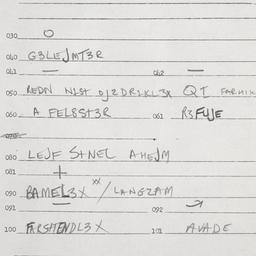 030 O
040 G3LEJMT3R
041 — 042 —
050 REDN NIST DJ2DR2KL3X QT FARMIK
060 A FELSST3R 061 R3FUJE
080 LEJF SHNEL AHEJM
081 +
090 BAMEL3X xx / LANGZAM
091 — 092
100 FARSHTENDL3X 101 AVADE